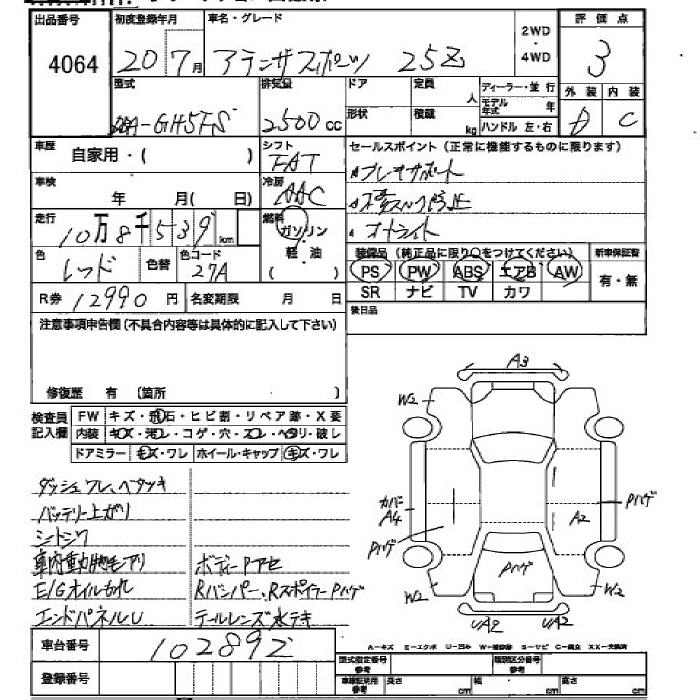 出品番号 4064
初度登録年月 20 7月
車名・グレード アテンザスポーツ 25Z
2WD・4WD
評価点 3
外装 D 内装 C
型式 DBA-GH5FS
排気量 2500cc
ドア 形状
定員 人 積載 kg
ディーラー・並行
モデル年式 年
ハンドル 左・右
車歴 自家用・( )
シフト FAT
車検 年 月(日)
冷房 AAC
走行 10万8千539km
燃料 ガソリン 軽・油 ( )
色 レッド 色替 色コード 27A
R券 12990円 名変期限 月 日
セールスポイント (正常に機能するものに限ります)
オートライト
装備品 (純正品に限り○をつけてください)
PS PW ABS エアB AW
SR ナビ TV カワ
新車保証書 有・無
後日品
注意事項申告欄(不具合内容等は具体的に記入して下さい)
修復歴 有 〔箇所 〕
検査員記入欄
FW キズ・飛石・ヒビ割・リペア跡・X要
内装 キズ・汚レ・コゲ・穴・スレ・ヘタリ・破レ
ドアミラー キズ・ワレ ホイール・キャップ キズ・ワレ
ダッシュワレ、ベタツキ
バッテリー上がり
シートシワ
車内動物毛アリ ボディーPアセ
E/Gオイルもれ Rバンパー、RスポイラーPハゲ
エンドパネルU テールレンズ水テキ
A3
W2
カバー A4
Pハゲ
A2
Pハゲ
Pハゲ
W2
W2
UA2
UA2
車台番号 102892
登録番号
A-キズ E-エクボ U-凹み W-補修跡 S-サビ C-腐食 XX-交換済
型式指定番号 参考
類別区分番号 参考
車庫証明用 参考 長さ cm 幅 cm 高さ cm